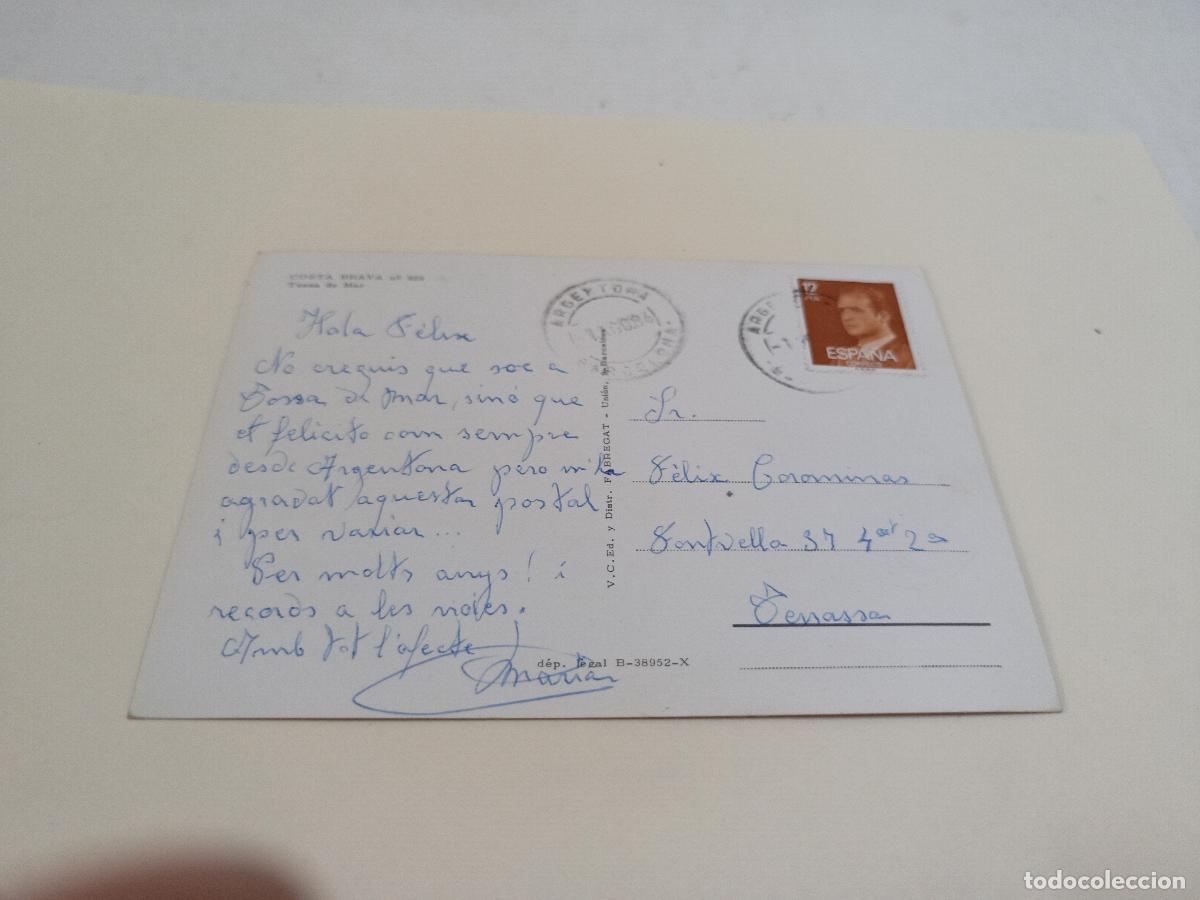 COSTA BRAVA nº
Tossa de Mar
Hola Fèlix
No creguis que soc a
Tossa de Mar, sinó que
et felicito com sempre
desde Argentona pero m'ha
agradat aquesta postal
i per variar...
Per molts anys! i
records a les noies.
Amb tot l'afecte
Maria
dép. legal B-38952-X
V.C.Ed. y Distr. FABREGAT - Unión, Barcelona
ARGENTONA
BARCELONA
ARGE
12
PTA
ESPAÑA
CORREOS
Sr.
Fèlix Corominas
Fontvella 37 4art 2a
Terrassa
todocoleccion